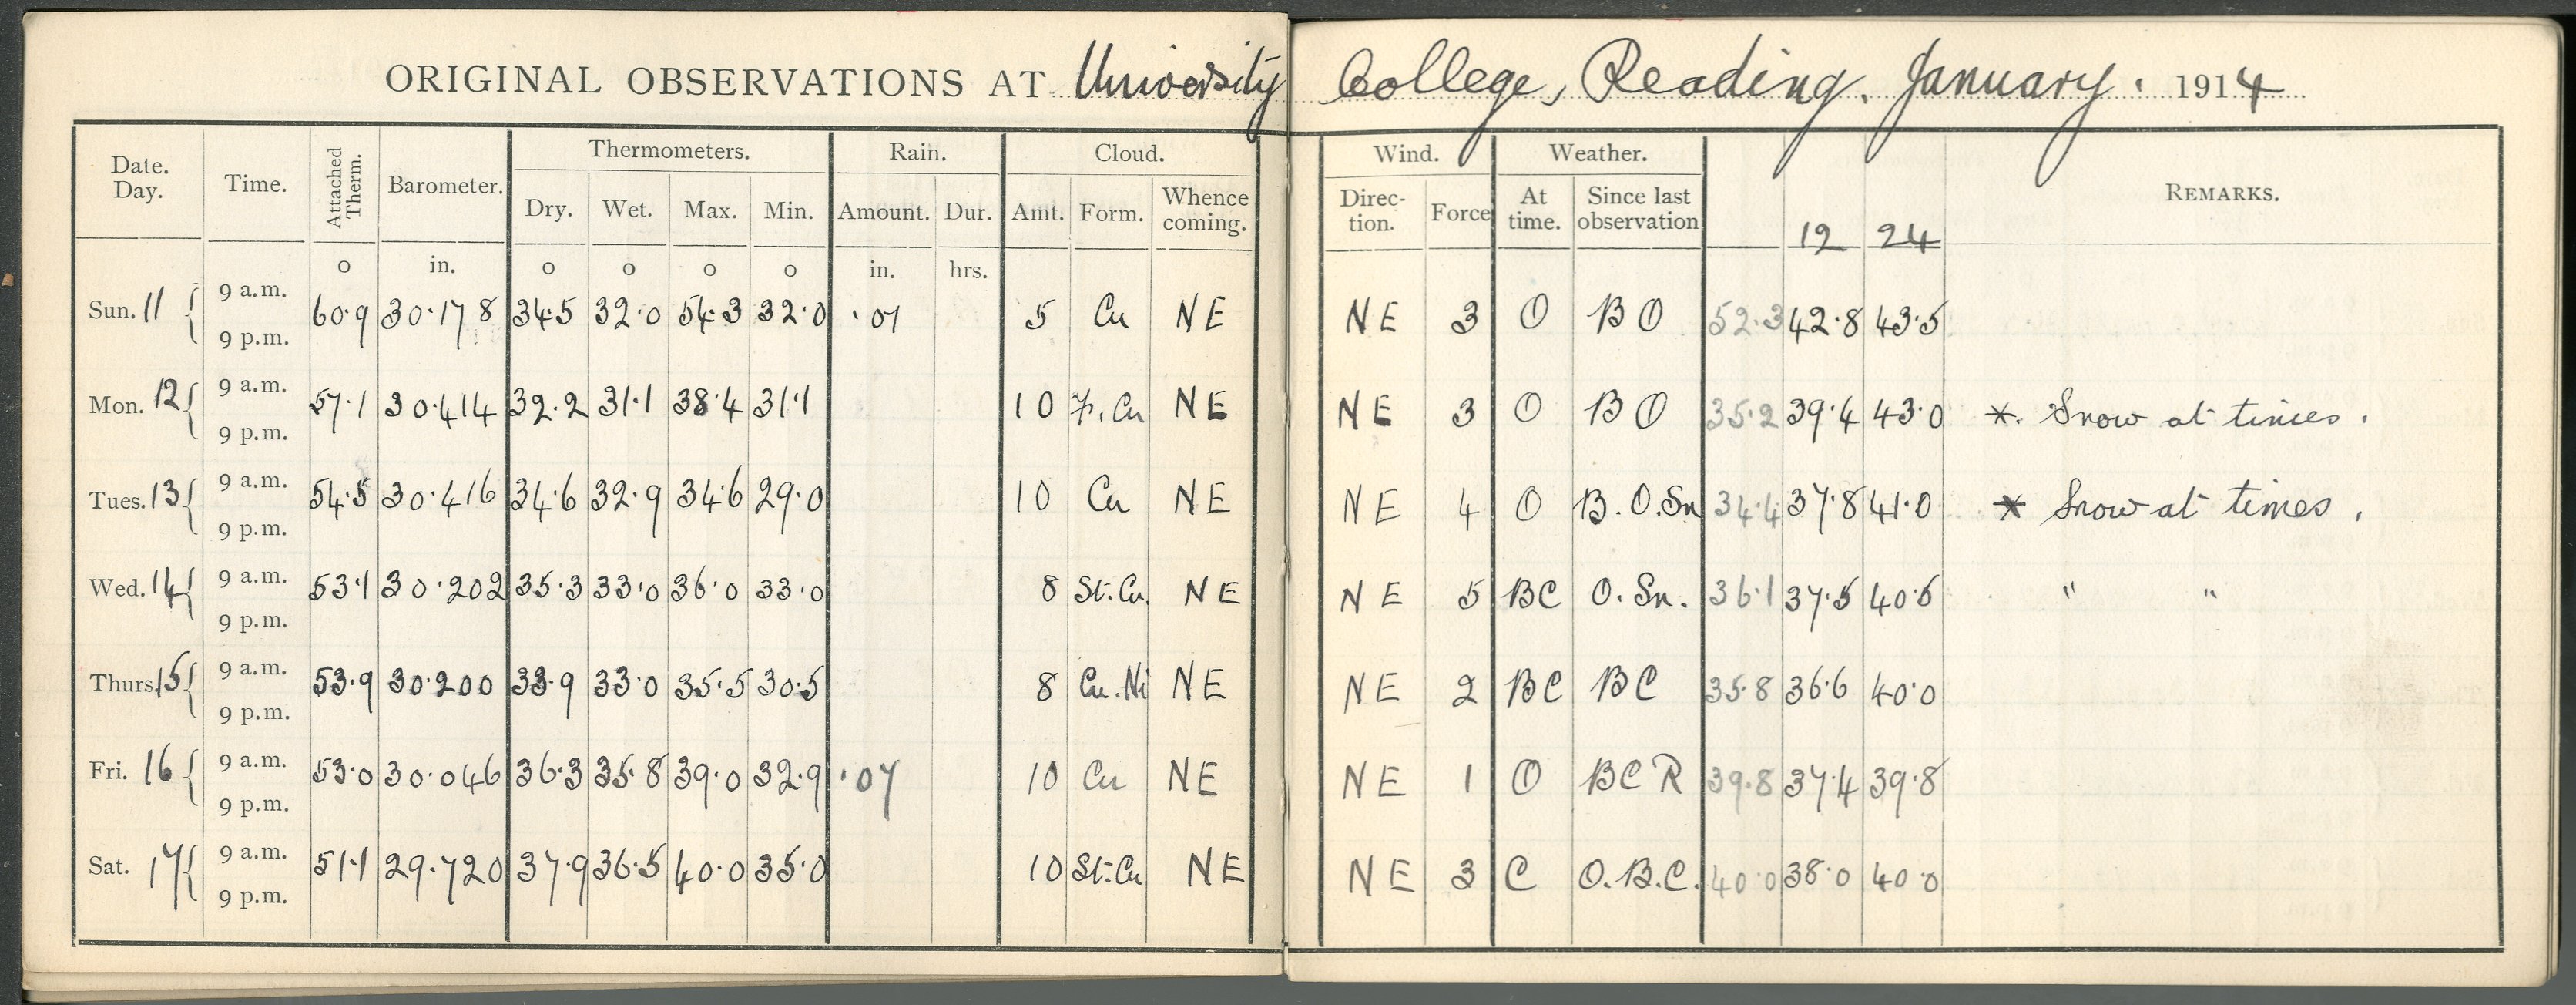 ORIGINAL OBSERVATIONS AT University College, Reading. January. 1914
Date. Day. Time. Attached Therm. Barometer. Thermometers. Rain. Cloud. Wind. Weather. REMARKS.
Dry. Wet. Max. Min. Amount. Dur. Amt. Form. Whence coming. Direction. Force At time. Since last observation 12 24
o in. o o o o in. hrs.
Sun. 11 9 a.m. 60.9 30.178 34.5 32.0 54.3 32.0 .07 5 Cu NE NE 3 O BO 52.3 42.8 43.5
9 p.m.
Mon. 12 9 a.m. 57.1 30.414 32.2 31.1 38.4 31.1 10 F.Cu NE NE 3 O BO 35.2 39.4 43.0 *. Snow at times.
9 p.m.
Tues. 13 9 a.m. 54.5 30.416 34.6 32.9 34.6 29.0 10 Cu NE NE 4 O B.O.Sn 34.4 37.8 41.0 * Snow at times.
9 p.m.
Wed. 14 9 a.m. 53.1 30.202 35.3 33.0 36.0 33.0 8 St.Cu. NE NE 5 BC O.Sn. 36.1 37.5 40.5 " "
9 p.m.
Thurs. 15 9 a.m. 53.9 30.200 33.9 33.0 35.5 30.5 8 Cu.Ni NE NE 2 BC BC 35.8 36.6 40.0
9 p.m.
Fri. 16 9 a.m. 53.0 30.046 36.3 35.8 39.0 32.9 .07 10 Cu NE NE 1 O BC R 39.8 37.4 39.8
9 p.m.
Sat. 17 9 a.m. 51.1 29.720 37.9 36.5 40.0 35.0 10 St.Cu NE NE 3 C O.B.C. 40.0 38.0 40.0
9 p.m.